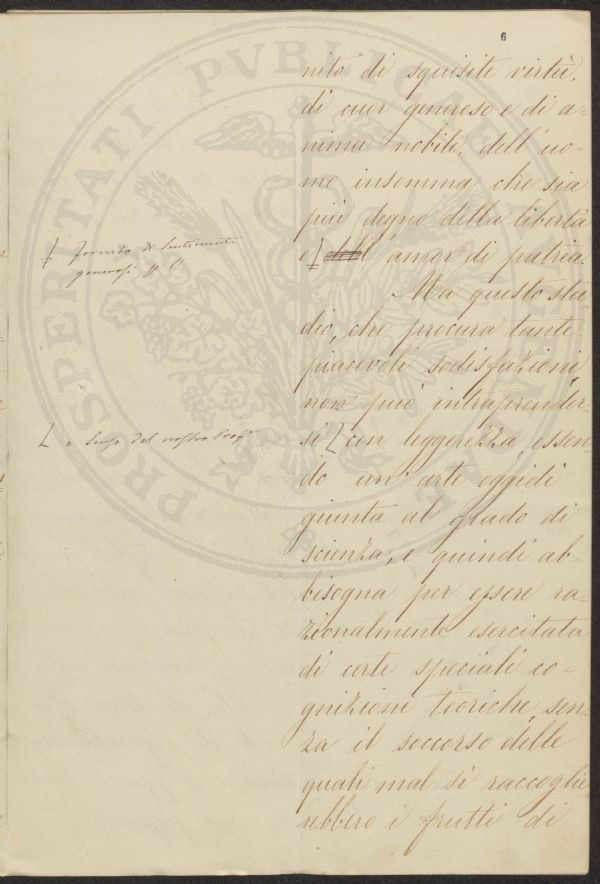 6
nito di squisite virtù,
di cuor generoso e di a-
nima nobile, dell'uo-
mo insomma che sia
più degno della libertà
e dell'amor di patria.
Ma questo stu-
dio, che procura tante
piacevoli sodisfazioni,
non può intraprender-
si con leggerezza, essen-
do un'arte oggidì
giunta al grado di
scienza, e quindi ab-
bisogna per essere ra-
zionalmente esercitata
di certe speciali co-
gnizioni teoriche, sen-
za il soccorso delle
quali mal si raccoglie-
rebbero i frutti di
fornito di sentimenti
generosi p l'
a senso del nostro
PROSPERITATI PVBLICAE AVGENDAE